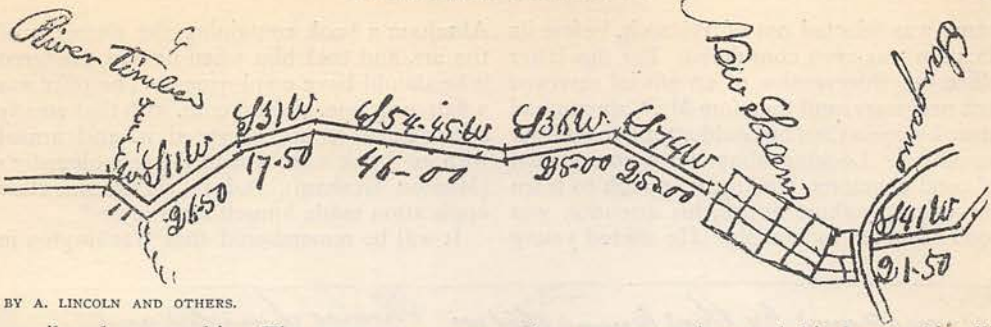 River Timber
S 11 W
26-50
S 31 W
17-50
S 54-45-W
46-00
S 36 W
25-00
S 74 W
25-00
New Salem
Sangamo
S 41 W
21-50
BY A. LINCOLN AND OTHERS.